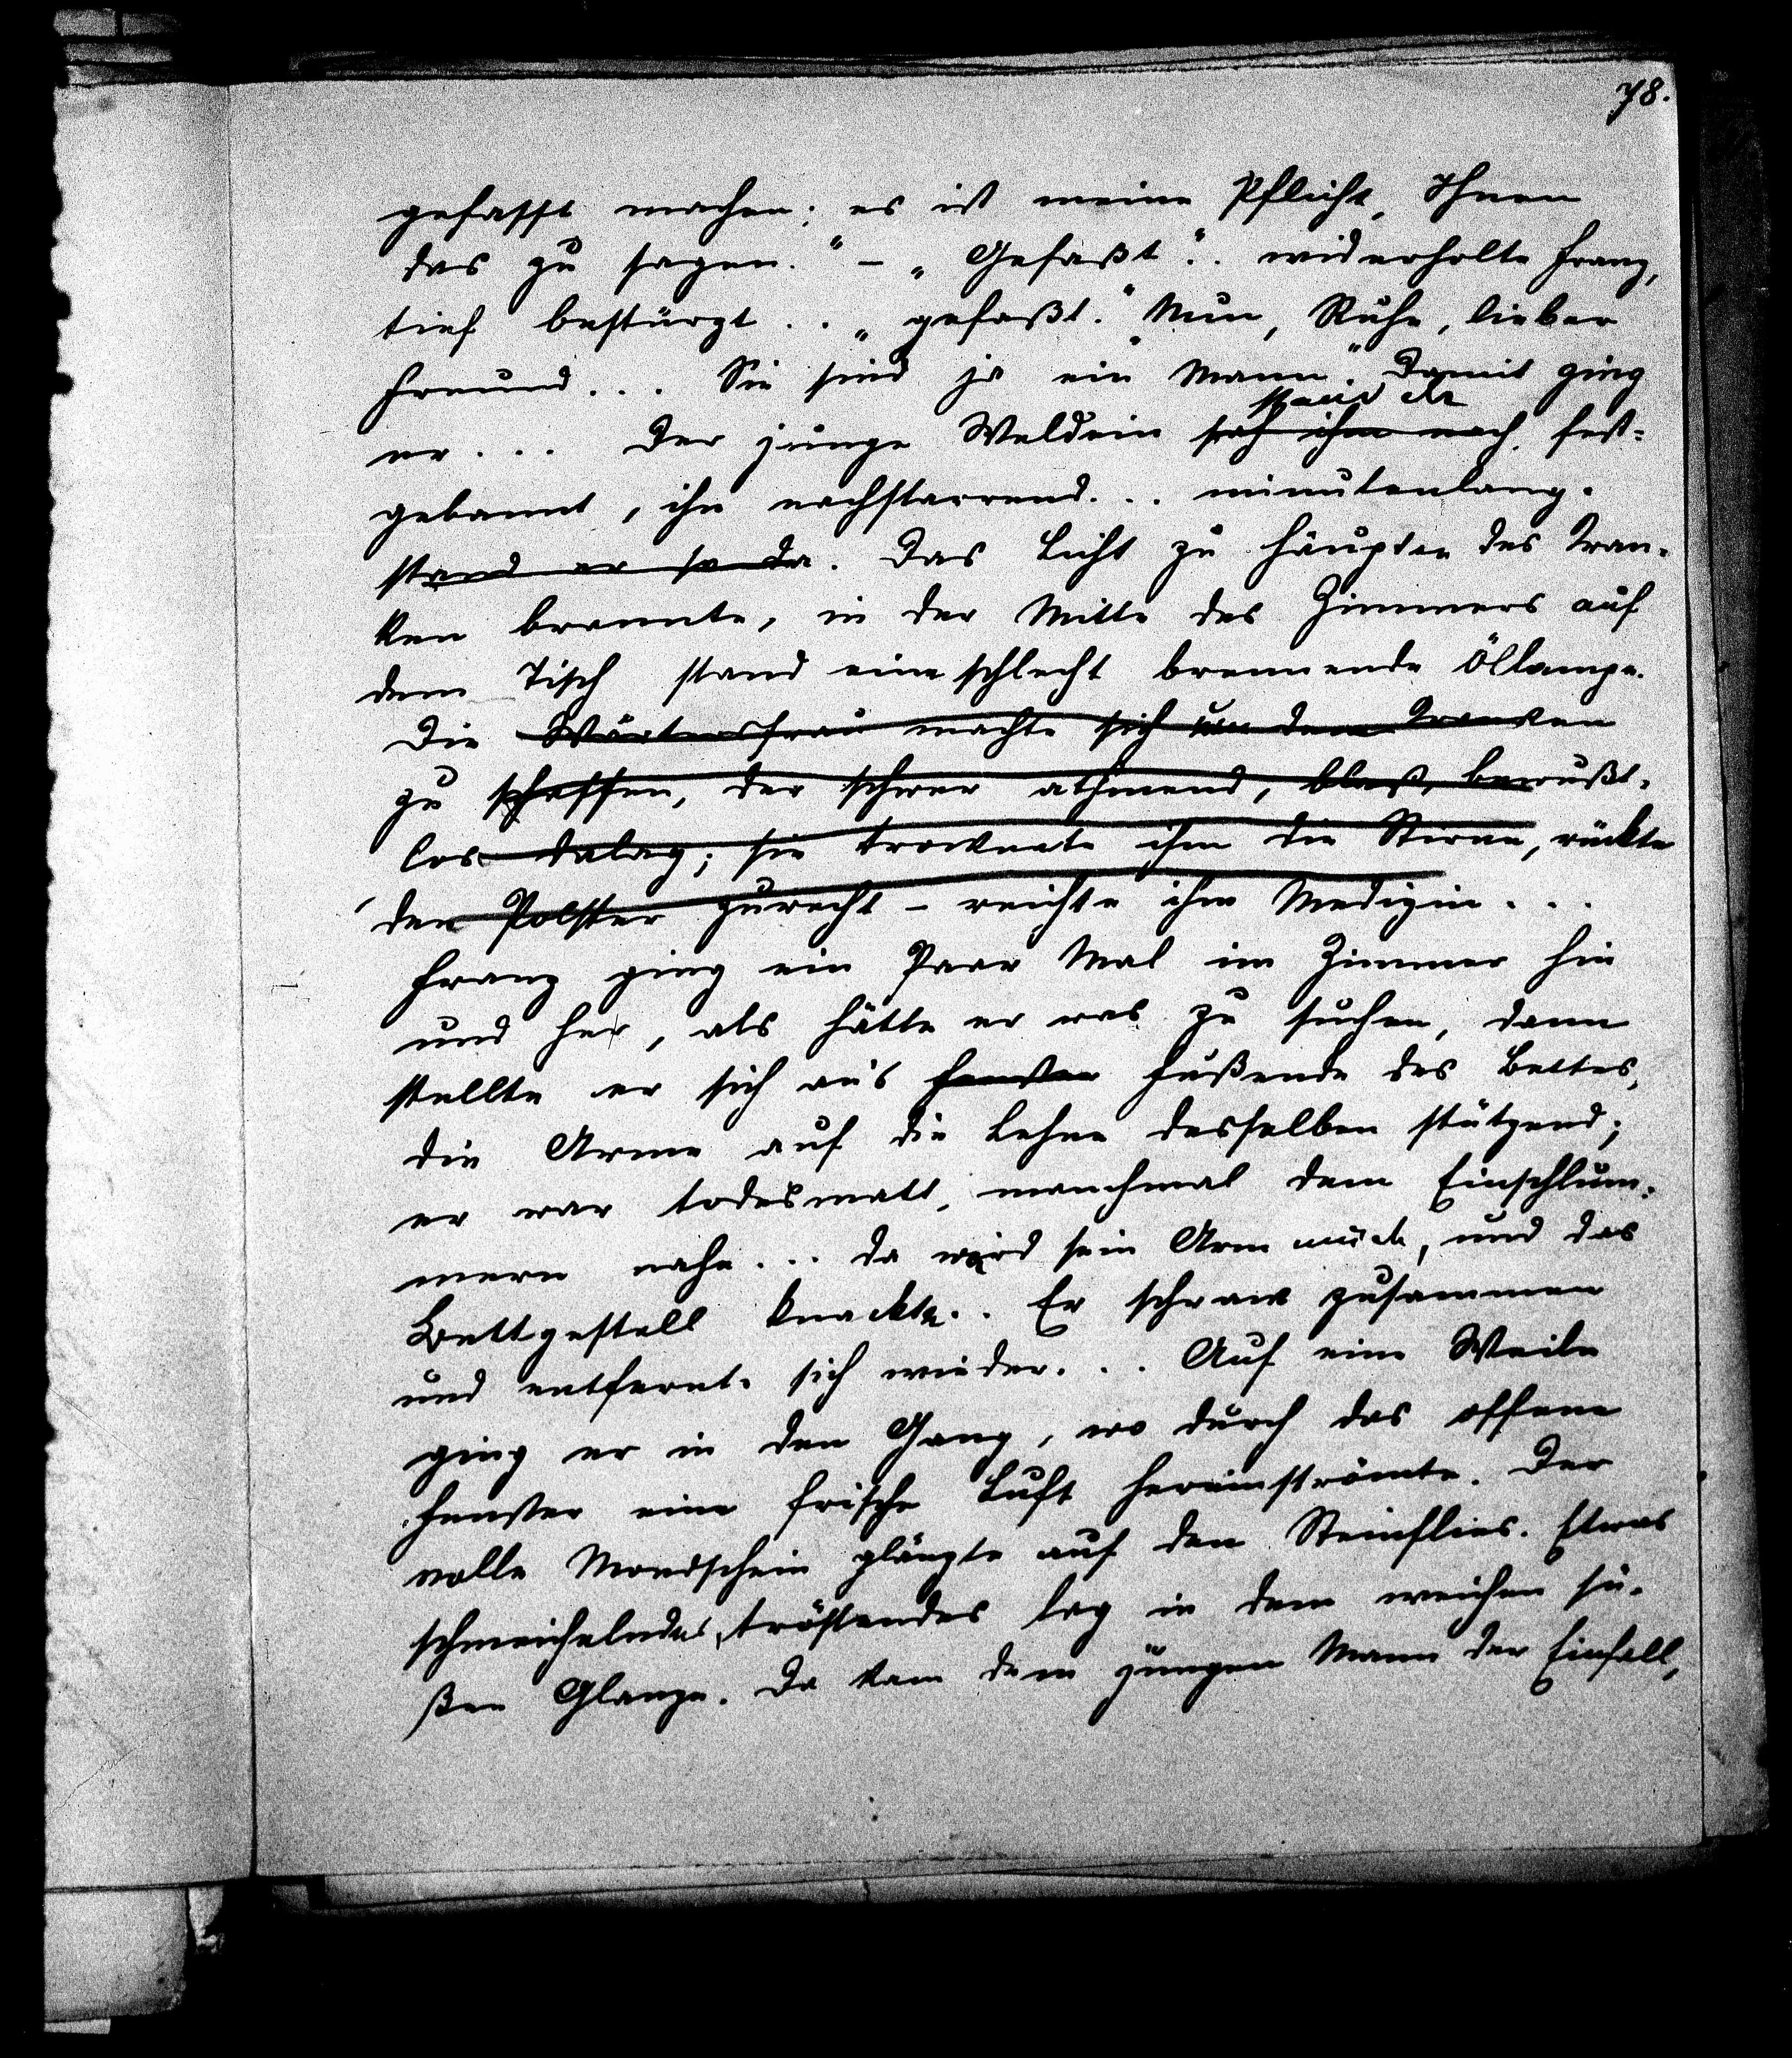 78.
gefasst machen; es ist meine Pflicht, Ihnen
das zu sagen." – „Gefaßt".. widerholte Franz,
tief bestürzt .. „gefaßt." „Nun, Ruhe, lieber
Freund... Sie sind ja ein Mann." Damit ging
stand da
er... Der junge Weldein sah ihm nach. fest-
gebannt, ihn nachstarrend... minutenlang.
stand er so da. Das Licht zu Häupten des Kran-
ken brannte, in der Mitte des Zimmers auf
dem Tisch stand eine schlecht brennende Öllampe.
Die Wärtersfrau machte sich um den Kranken
zu schaffen, der schwer athmend, blaß, bewußt-
los dalag; sie trocknete ihm die Stirne, rückte
den Polster zurecht – reichte ihm Medizin...
Franz ging ein Paar Mal im Zimmer hin
und her, als hätte er was zu suchen, dann
stellte er sich an's Fenster Fußende des Bettes,
die Arme auf die Lehne desselben stützend;
er war todesmatt, manchmal dem Einschlum-
mern nahe... da ward sein Arm müde, und das
Bettgestell knackte.. Er schrak zusammen
und entfernte sich wieder... Auf eine Weile
ging er in den Gang, wo durch das offene
Fenster eine frische Luft hereinströmte. Der
volle Mondschein glänzte auf den Steinflies. Etwas
schmeichelndes, tröstendes lag in dem weichen sü-
ßen Glanze. Da kam dem jungen Mann der Einfall,